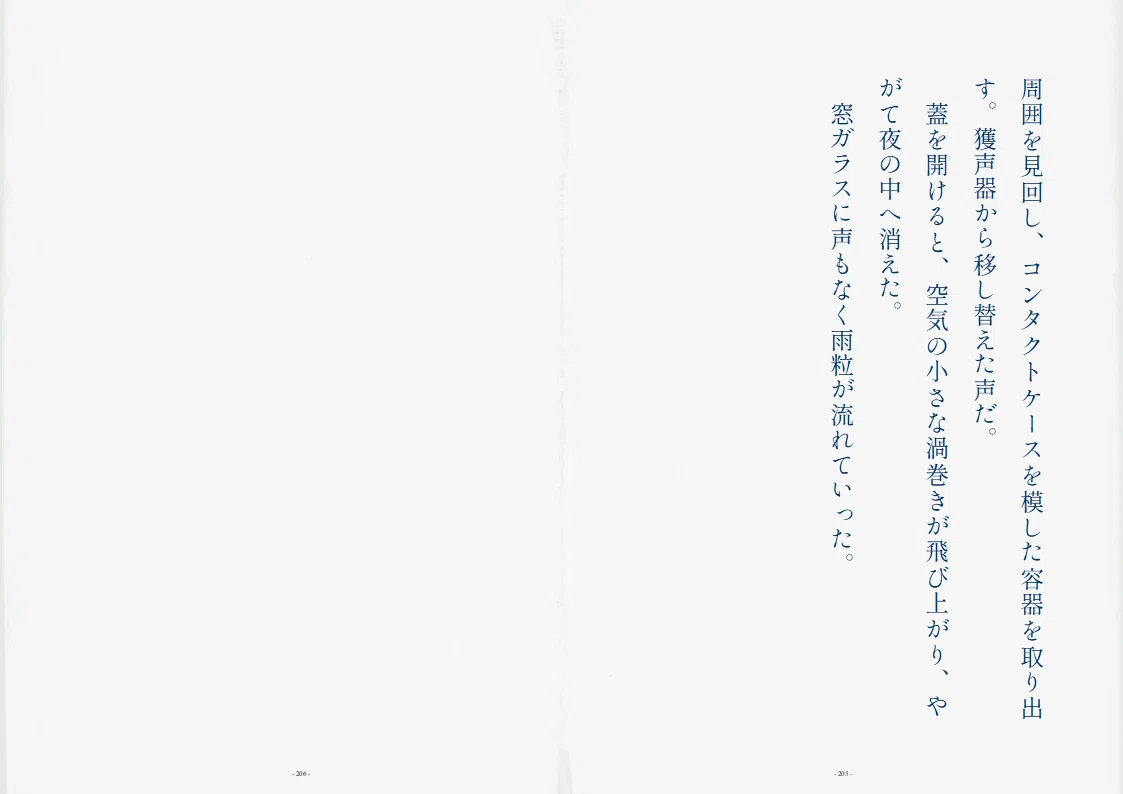 周囲を見回し、コンタクトケースを模した容器を取り出
す。獲声器から移し替えた声だ。
　蓋を開けると、空気の小さな渦巻きが飛び上がり、や
がて夜の中へ消えた。
　窓ガラスに声もなく雨粒が流れていった。
- 205 -
- 206 -